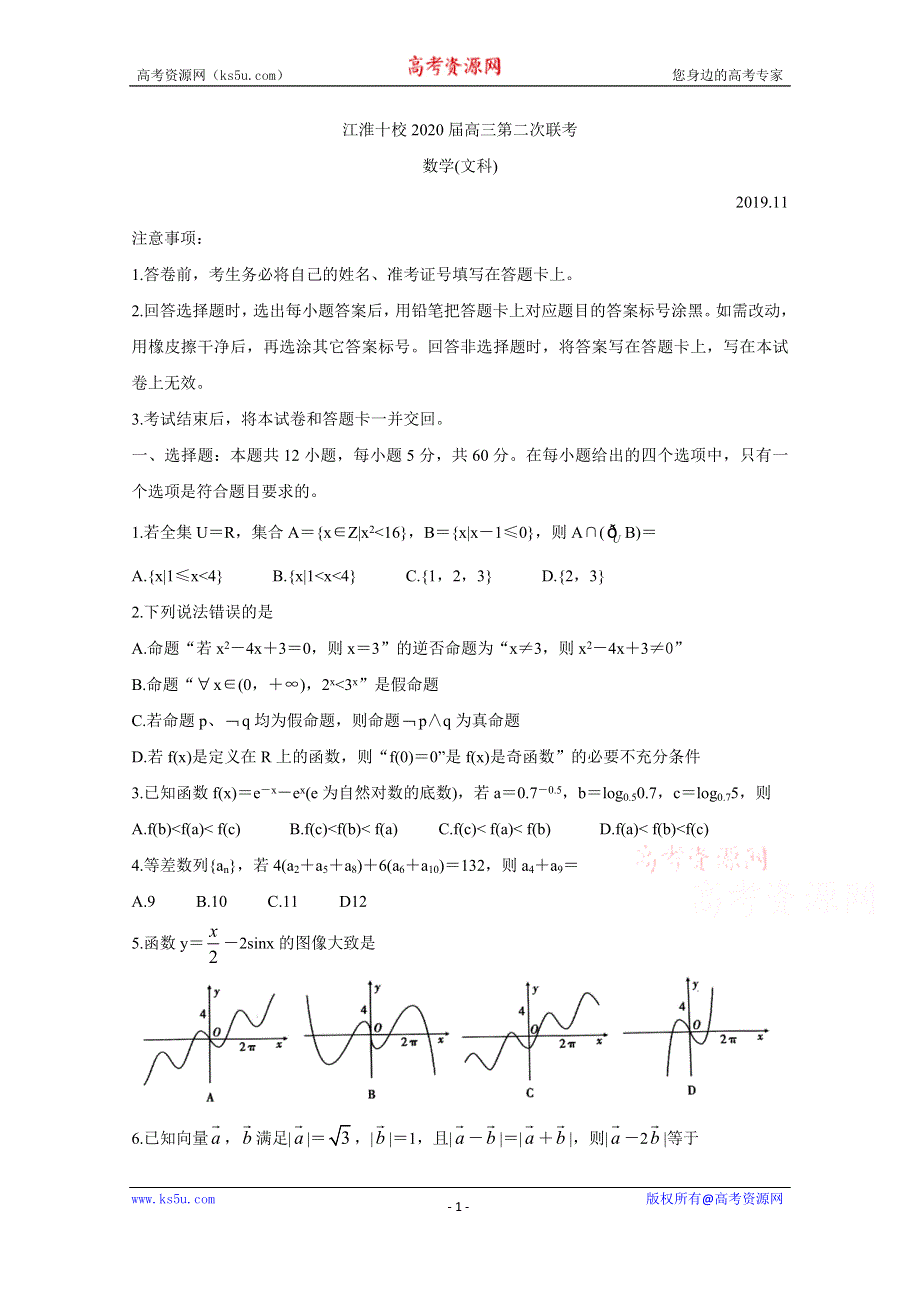 高考资源网（ks5u.com） 高考资源网 您身边的高考专家
江淮十校 2020 届高三第二次联考
数学(文科)
2019.11
注意事项：
1.答卷前，考生务必将自己的姓名、准考证号填写在答题卡上。
2.回答选择题时，选出每小题答案后，用铅笔把答题卡上对应题目的答案标号涂黑。如需改动，
用橡皮擦干净后，再选涂其它答案标号。回答非选择题时，将答案写在答题卡上，写在本试
卷上无效。
3.考试结束后，将本试卷和答题卡一并交回。
一、选择题：本题共 12 小题，每小题 5 分，共 60 分。在每小题给出的四个选项中，只有一
个选项是符合题目要求的。
1.若全集 U＝R，集合 A＝{x∈Z|x²<16}，B＝{x|x－1≤0}，则 A∩(ð_U B)＝
A.{x|1≤x<4} B.{x|1<x<4} C.{1，2，3} D.{2，3}
2.下列说法错误的是
A.命题“若 x²－4x＋3＝0，则 x＝3”的逆否命题为“x≠3，则 x²－4x＋3≠0”
B.命题“∀x∈(0，＋∞)，2ˣ<3ˣ”是假命题
C.若命题 p、﹁q 均为假命题，则命题﹁p∧q 为真命题
D.若 f(x)是定义在 R 上的函数，则“f(0)＝0”是 f(x)是奇函数”的必要不充分条件
3.已知函数 f(x)＝e^{－x}－e^{x}(e 为自然对数的底数)，若 a＝0.7^{－0.5}，b＝log_{0.5}0.7，c＝log_{0.7}5，则
A.f(b)<f(a)< f(c) B.f(c)<f(b)< f(a) C.f(c)< f(a)< f(b) D.f(a)< f(b)<f(c)
4.等差数列{aₙ}，若 4(a₂＋a₅＋a₈)＋6(a₆＋a₁₀)＝132，则 a₄＋a₉＝
A.9 B.10 C.11 D12
高考资源网
高考资源网
5.函数 y＝x/2－2sinx 的图像大致是
y 4 O 2π x A
y 4 O 2π x B
y 4 O 2π x C
y 4 O 2π x D
6.已知向量 a⃗，b⃗ 满足|a⃗|＝√3，|b⃗|＝1，且|a⃗－b⃗|＝|a⃗＋b⃗|，则|a⃗－2b⃗|等于
www.ks5u.com - 1 - 版权所有@高考资源网